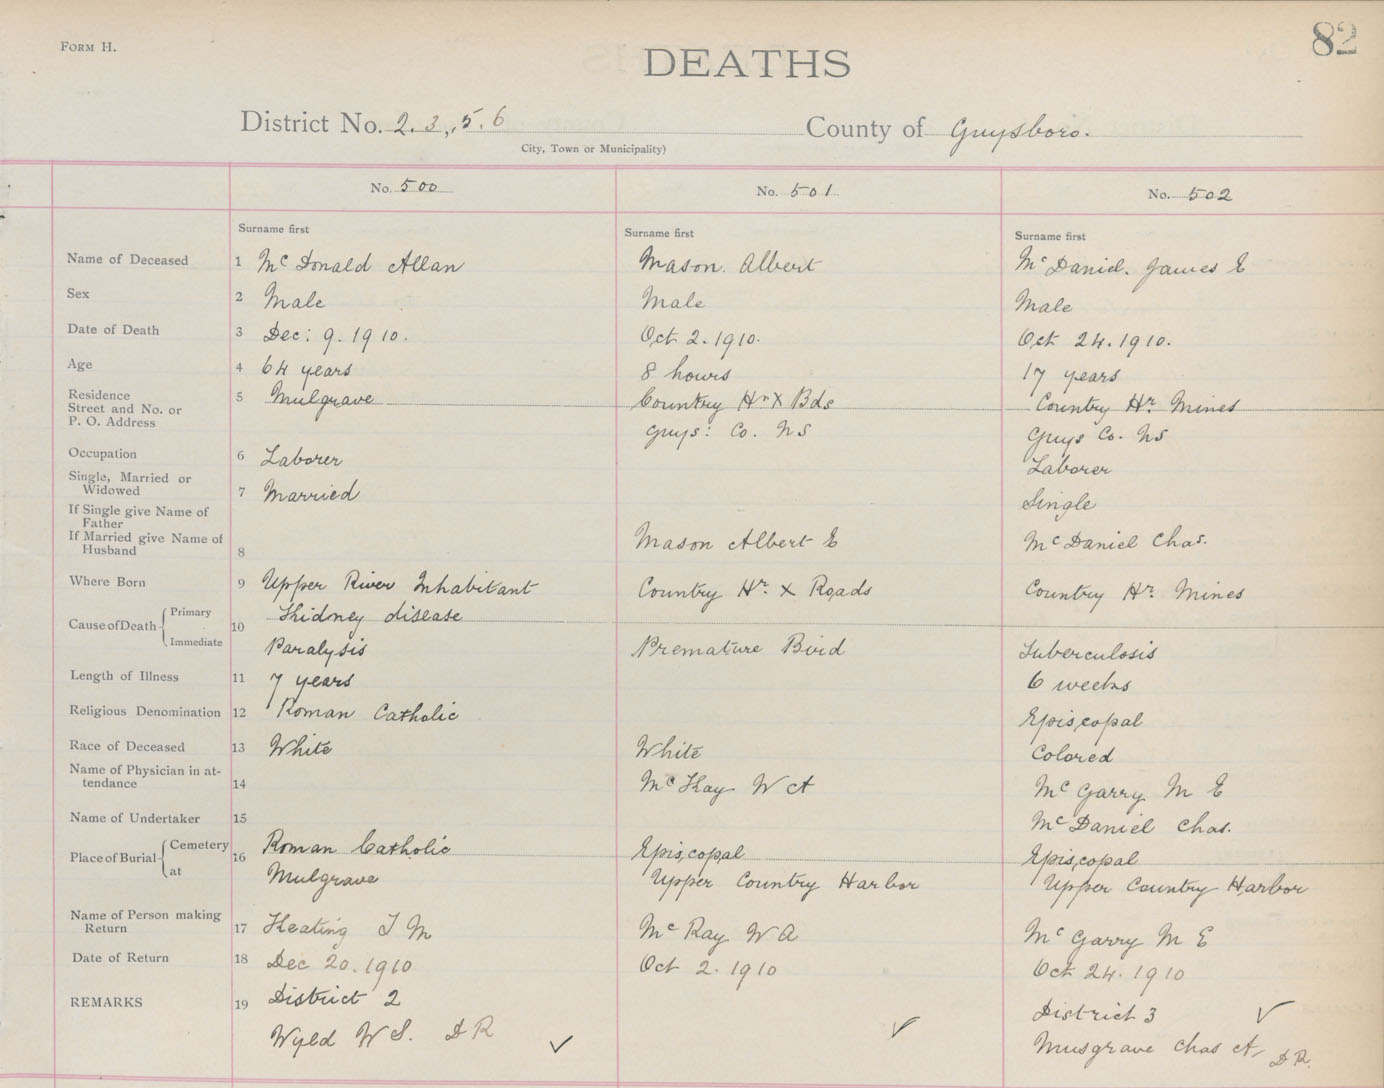 FORM H.
82
DEATHS
District No. 2. 3,, 5. 6 County of Guysboro.
City, Town or Municipality)
No. 500 No. 501 No. 502
Surname first Surname first Surname first
Name of Deceased 1 Mc Donald Allan Mason. Albert Mc Daniel. James E
Sex 2 Male Male Male
Date of Death 3 Dec: 9. 1910. Oct 2. 1910. Oct 24. 1910.
Age 4 64 years 8 hours 17 years
Residence 5 Mulgrave Country Hr X Rds Country Hr. Mines
Street and No. or
P. O. Address Guys: Co. NS Guys Co. NS
Occupation 6 Laborer Laborer
Single, Married or
Widowed 7 Married Single
If Single give Name of
Father
If Married give Name of
Husband 8 Mason Albert E Mc Daniel Chas.
Where Born 9 Upper River Inhabitant Country Hr. X Roads Country Hr. Mines
Cause of Death Primary 10 Kidney disease
Immediate Paralysis Premature Tuberculosis
Length of Illness 11 7 years 6 weeks
Religious Denomination 12 Roman Catholic Episcopal
Race of Deceased 13 White White Colored
Name of Physician in at-
tendance 14 Mc Kay W A Mc Garry M E
Name of Undertaker 15 Mc Daniel Chas.
Place of Burial Cemetery 16 Roman Catholic Episcopal Episcopal
at Mulgrave Upper Country Harbor Upper Country Harbor
Name of Person making
Return 17 Keating J M Mc Kay W A Mc Garry M E
Date of Return 18 Dec 20. 1910 Oct 2. 1910 Oct 24. 1910
REMARKS 19 District 2 District 3 ✓
Wyld W S. D R ✓ ✓ Musgrave Chas A, D R.